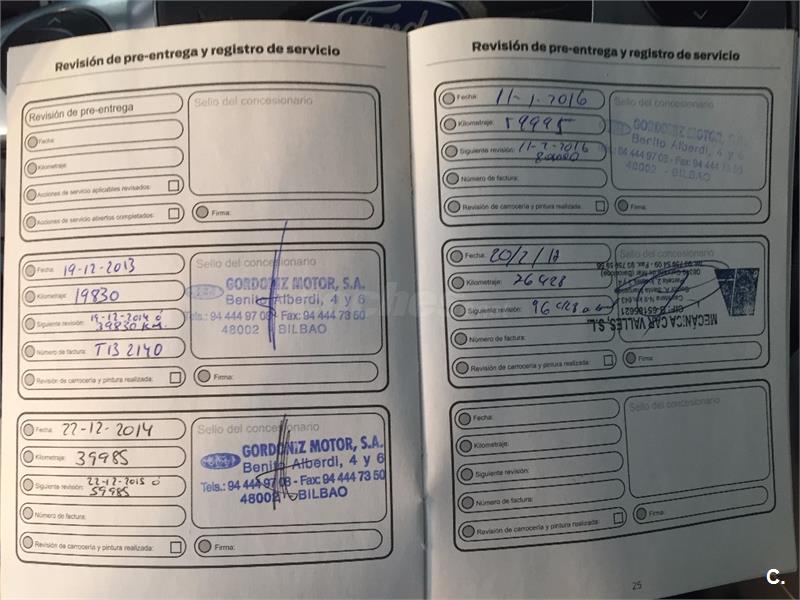 Revisión de pre-entrega y registro de servicio
Revisión de pre-entrega
Fecha:
Kilometraje:
Acciones de servicio aplicables revisados:
Acciones de servicio abiertos completados:
Sello del concesionario
Firma:
Fecha: 19-12-2013
Kilometraje: 19830
Siguiente revisión: 19-12-2014 ó
39830 KM.
Número de factura: TB 2140
Revisión de carrocería y pintura realizada:
Sello del concesionario
GORDONIZ MOTOR, S.A.
Benito Alberdi, 4 y 6
Tels.: 94 444 97 08 - Fax: 94 444 73 50
48002 - BILBAO
Firma:
Fecha: 22-12-2014
Kilometraje: 39985
Siguiente revisión: 22-12-2015 ó
59985
Número de factura:
Revisión de carrocería y pintura realizada:
Sello del concesionario
GORDONIZ MOTOR, S.A.
Benito Alberdi, 4 y 6
Tels.: 94 444 97 08 - Fax: 94 444 73 50
48002 - BILBAO
Firma:
Revisión de pre-entrega y registro de servicio
Fecha: 11-1-2016
Kilometraje: 59995
Siguiente revisión: 11-2-2016
80000
Número de factura:
Revisión de carrocería y pintura realizada:
Sello del concesionario
GORDONIZ MOTOR, S.A.
Benito Alberdi, 4 y 6
94 444 97 08 - Fax: 94 444 73
48002 - BILBAO
Firma:
Fecha: 20/2/17
Kilometraje: 76428
Siguiente revisión: 96428
Número de factura:
Revisión de carrocería y pintura realizada:
MECÀNICA CAR VALLÈS, S.L.
Firma:
Fecha:
Kilometraje:
Siguiente revisión:
Número de factura:
Revisión de carrocería y pintura realizada:
Sello del concesionario
Firma:
25
C.